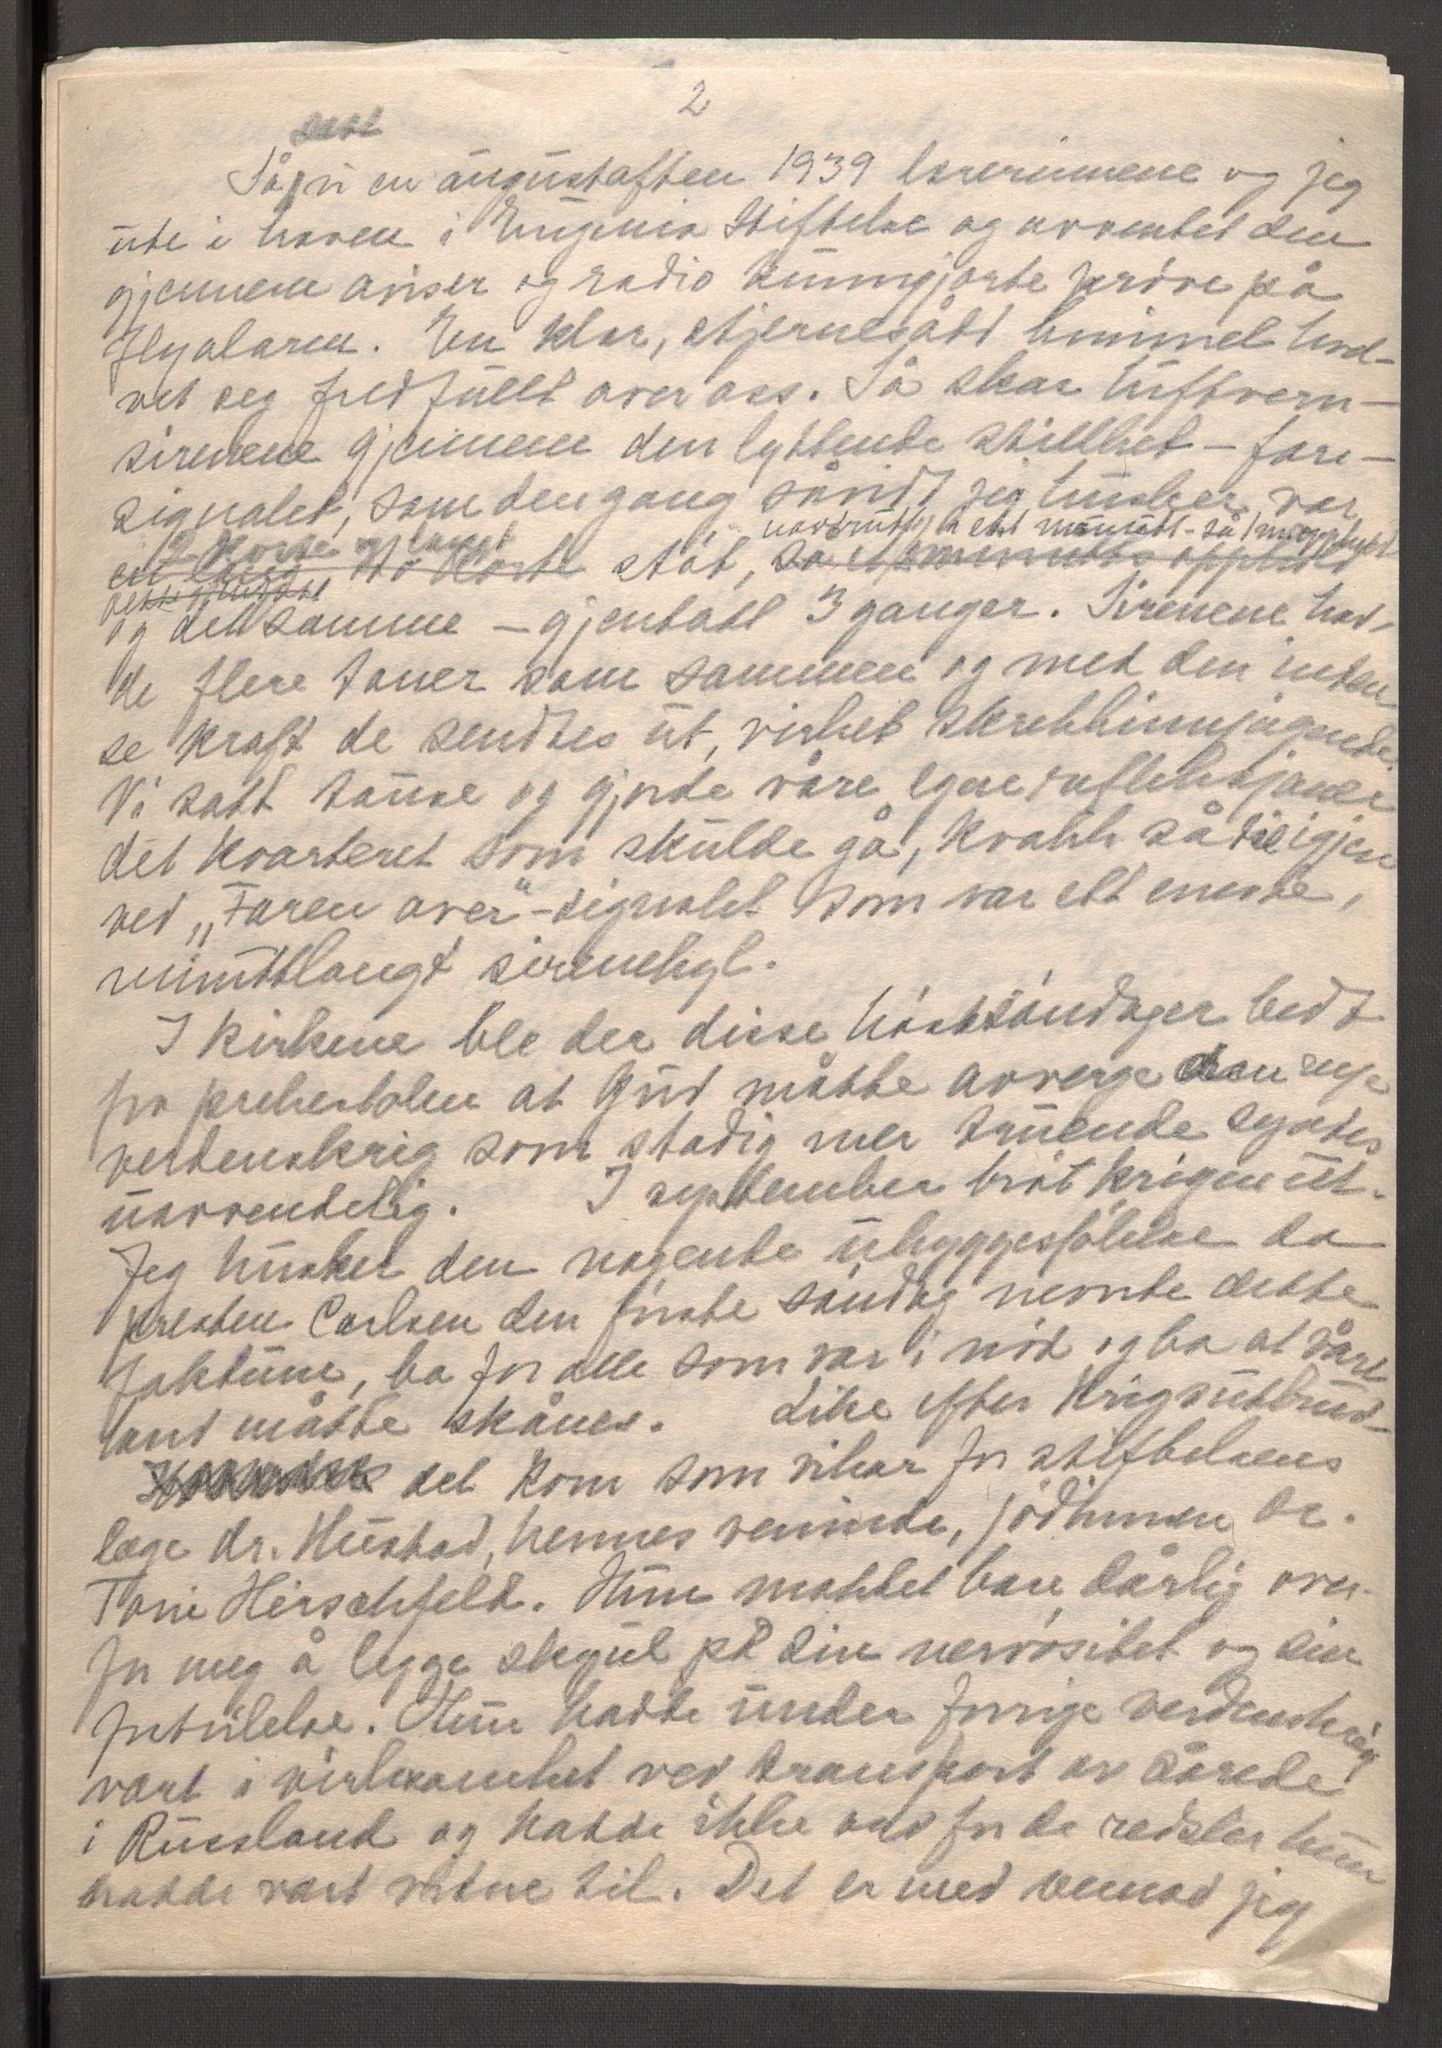 2
satt
Så vi en augustaften 1939 lærerinnene og jeg
ute i haven i Eugenia Stiftelse og avventet den
gjennem aviser og radio kunngjorte prøve på
flyalarm. En klar, stjernesådd himmel hvel-
vet seg fredfullt over oss. Så skar luftvern-
sirenene gjennem den lyttende stillhet – fare-
signalet, som dengang såvidt jeg husker, var
uavbrutt i ett minutt - så 1 min. opphold
2 korte og langt
ett langt to korte støt, så et minutts opphold
og det samme – gjentatt 3 ganger. Sirenene had-
de flere toner som sammen og med den inten
se kraft de sendtes ut, virket skrekkinnjagende.
Vi satt tause og gjorde våre egne refleksjoner
det kvarteret som skulde gå, kvakk så i igjen
ved „Faren over"-signalet som var ett eneste,
minuttlangt sirenehyl.
I kirkene ble der disse høstsøndager bedt
fra prekestolen at Gud måtte avverge den nye
verdenskrig som stadig mer truende syntes
uavvendelig. I september brøt krigen ut.
Jeg husker den nagende uhyggesfølelse da
presten Carlsen den første søndag nevnte dette
faktum, ba for alle som var i nød og ba at vårt
land måtte skånes. Like efter krigsutbrud-
det kom som vikar for stiftelsens
læge dr. Hustad, hennes veninde, jødinnen dr.
Toni Hirschfeld. Hun maktet bare dårlig over-
for meg å legge skjul på sin nervøsitet og sin
fortvilelse. Hun hadde under forrige verdenskrig
vært i virksomhet ved transport av sårede
i Russland og hadde ikke ord for de redsler hun
hadde vært vitne til. Det er med vemod jeg